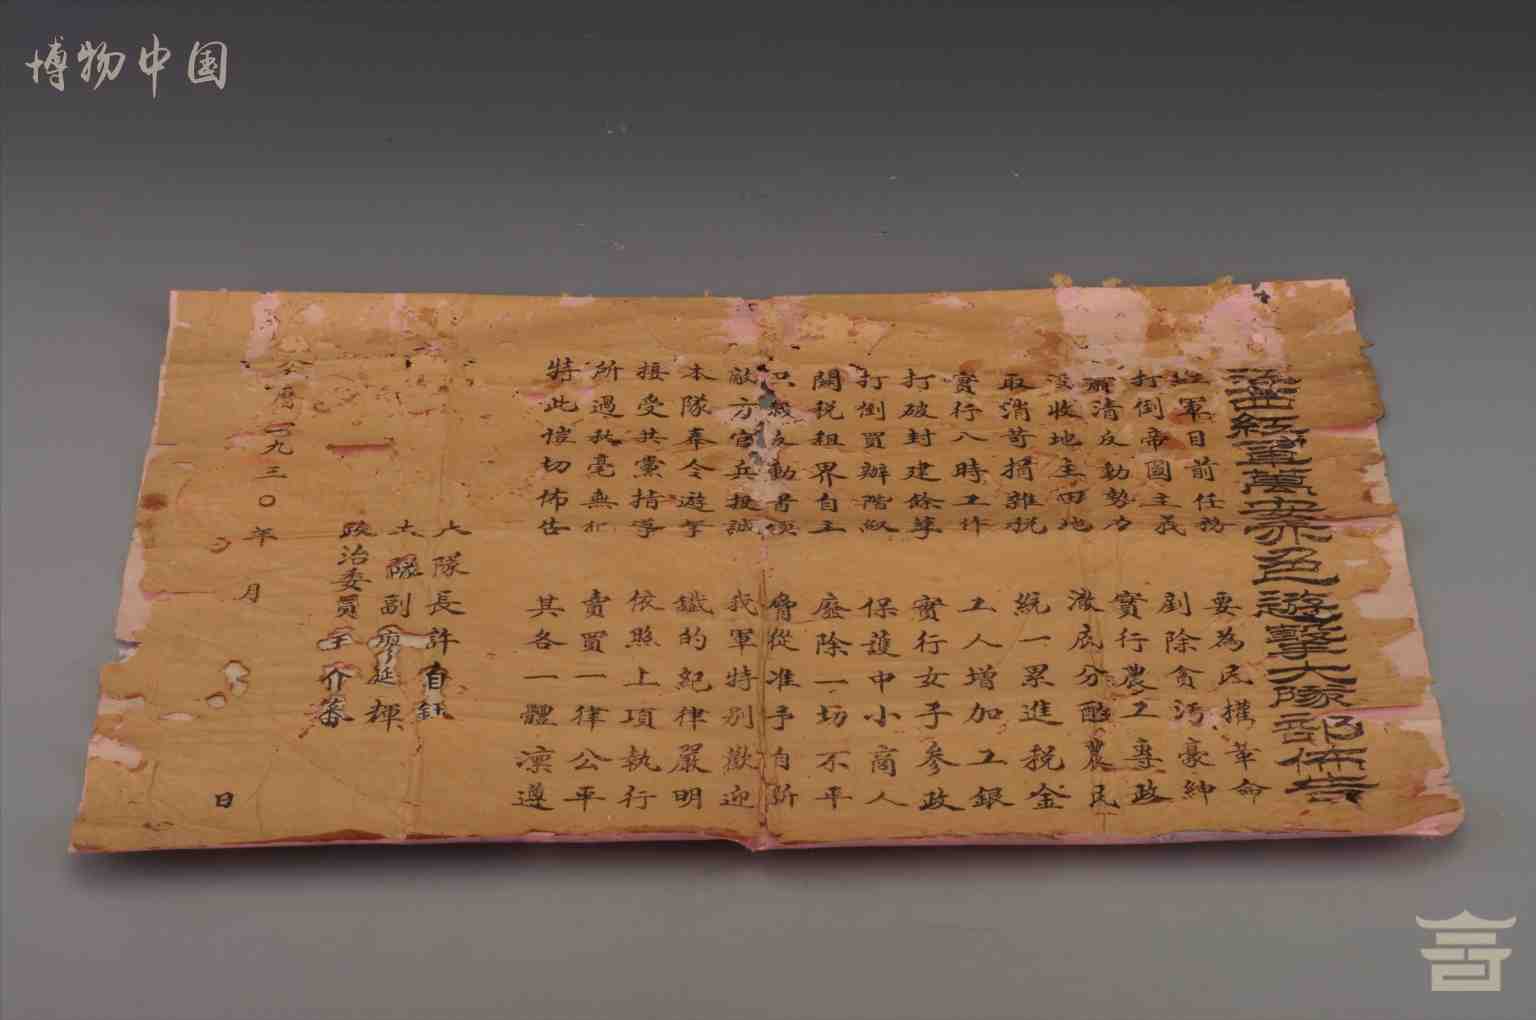 博物中国
江西紅軍萬安赤色遊擊大隊部佈告
紅軍目前任務 要為民權革命
打倒帝國主義 剷除貪污豪紳
肅清反動勢力 實行農工專政
沒收地主田地 澈底分配農民
取消苛捐雜稅 統一累進稅金
實行八時工作 工人增加工銀
打破封建餘孽 實行女子參政
打倒買辦階級 保護中小商人
關稅租界自主 廢除一切不平
只殺反動首領 脅從准予自新
敵方官兵投誠 我軍特別歡迎
本隊奉令遊擊 鐵的紀律嚴明
接受共黨指導 依照上項執行
所過秋毫無犯 賣買一律公平
特此愷切佈告 其各一體凜遵
大隊長 許自鈺
大隊副 廖延輝
政治委員 介
公曆一九三〇年 月 日